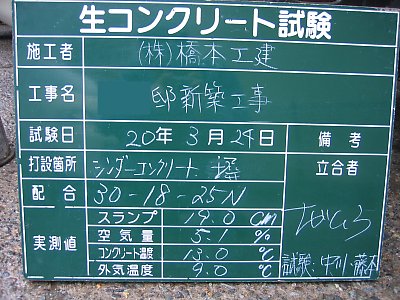 生コンクリート試験
施工者 (株)橋本工建
工事名 邸新築工事
試験日 20年 3月 24日 備考
打設箇所 シンダーコンクリート 立合者
配合 30-18-25N
スランプ 19.0 cm
実測値 空気量 5.1 %
コンクリート温度 13.0 ℃
外気温度 9.0 ℃ 試験:中川・藤本